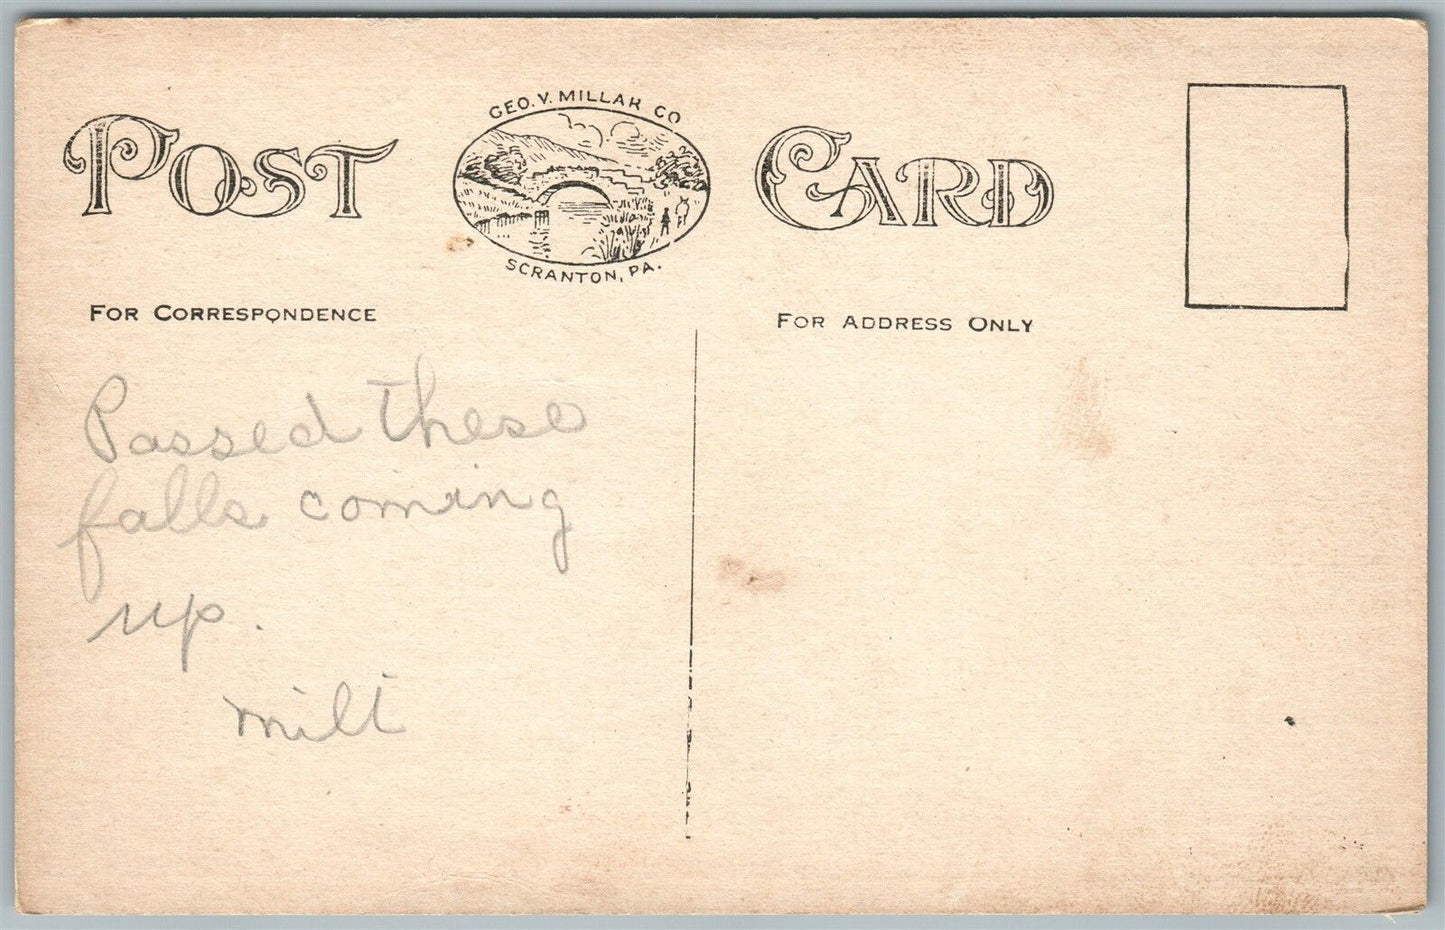 GEO. V. MILLAR CO
POST CARD
SCRANTON, PA.
FOR CORRESPONDENCE
FOR ADDRESS ONLY
Passed these
falls coming
up.
milt